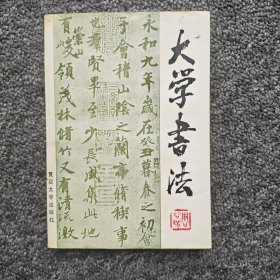 大学書法
永和九年歲在癸丑暮春之初會
于會稽山陰之蘭亭脩稧事
也群賢畢至少長咸集此地
有崇山峻領茂林脩竹又有清流激
复旦大学出版社